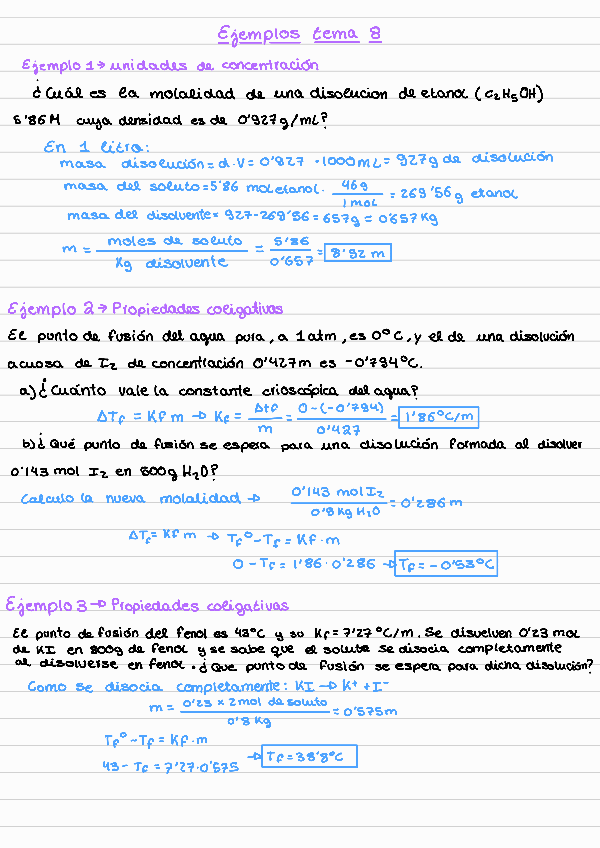 Ejemplos tema 8
Ejemplo 1 → unidades de concentración
¿Cuál es la molalidad de una disolucion de etanol (C₂H₅OH)
5'86M cuya densidad es de 0'927g/mL?
En 1 litro:
masa disolución = d·V = 0'927 · 1000mL = 927g de disolución
masa del soluto = 5'86 mol etanol · 46g / 1mol = 269'56g etanol
masa del disolvente = 927-269'56 = 657g = 0'657 Kg
m = moles de soluto / Kg disolvente = 5'86 / 0'657 = 8'92 m
Ejemplo 2 → Propiedades coligativas
El punto de fusión del agua pura, a 1atm, es 0°C, y el de una disolución
acuosa de I₂ de concentración 0'427m es -0'794°C.
a) ¿Cuánto vale la constante crioscópica del agua?
ΔTf = Kf m → Kf = Δtf / m = 0-(-0'794) / 0'427 = 1'86°C/m
b) ¿Qué punto de fusión se espera para una disolución formada al disolver
0'143 mol I₂ en 500g H₂O?
Calculo la nueva molalidad → 0'143 mol I₂ / 0'8 Kg H₂O = 0'286 m
ΔTf = Kf m → Tf° - Tf = Kf · m
0 - Tf = 1'86 · 0'286 → Tf = -0'53°C
Ejemplo 3 → Propiedades coligativas
El punto de fusión del fenol es 43°C y su Kf = 7'27 °C/m. Se disuelven 0'23 mol
de KI en 800g de fenol y se sabe que el soluto se disocia completamente
al disolverse en fenol. ¿Que punto de fusión se espera para dicha disolución?
Como se disocia completamente: KI → K⁺ + I⁻
m = 0'23 x 2mol de soluto / 0'8 Kg = 0'575m
Tf° - Tf = Kf · m
43 - Tf = 7'27 · 0'575 → Tf = 38'8°C